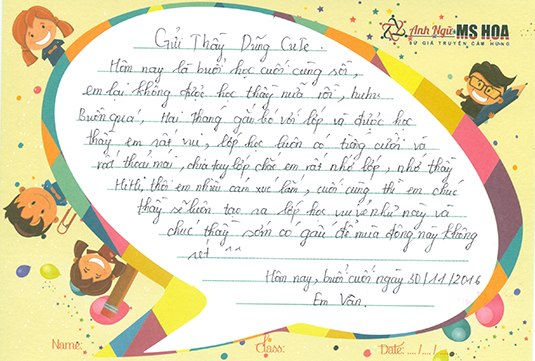 Anh Ngữ MS HOA
SỨ GIẢ TRUYỀN CẢM HỨNG
Gửi Thầy Dũng CuTe.
Hôm nay là buổi học cuối cùng rồi,
em lại không được học thầy nữa rồi, huhu
Buồn quá, Hai tháng gắn bó với lớp và được học
thầy em rất vui, lớp học luôn có tiếng cười và
rất thoải mái, chia tay lớp chắc em rất nhớ lớp, nhớ thầy
HiHi, thôi em nhiều cảm xúc lắm, cuối cùng thì em chúc
thầy sẽ luôn tạo ra lớp học vui vẻ như này và
chúc thầy sớm có gấu để mùa đông này không
rét ^^
Hôm nay, buổi cuối ngày 30/11/2016
Em Vân.
Name:
Class:
Date: .... /.... /....